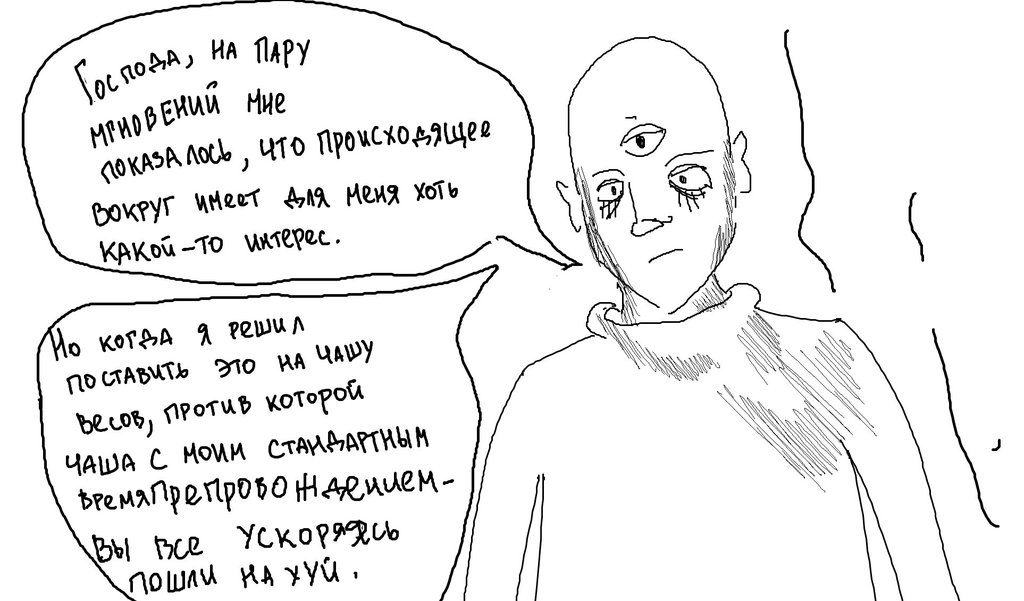 Господа, на пару
мгновений мне
показалось, что происходящее
вокруг имеет для меня хоть
какой-то интерес.
Но когда я решил
поставить это на чашу
весов, против которой
чаша с моим стандартным
времяпрепровождением-
вы все ускоряясь
пошли на хуй.